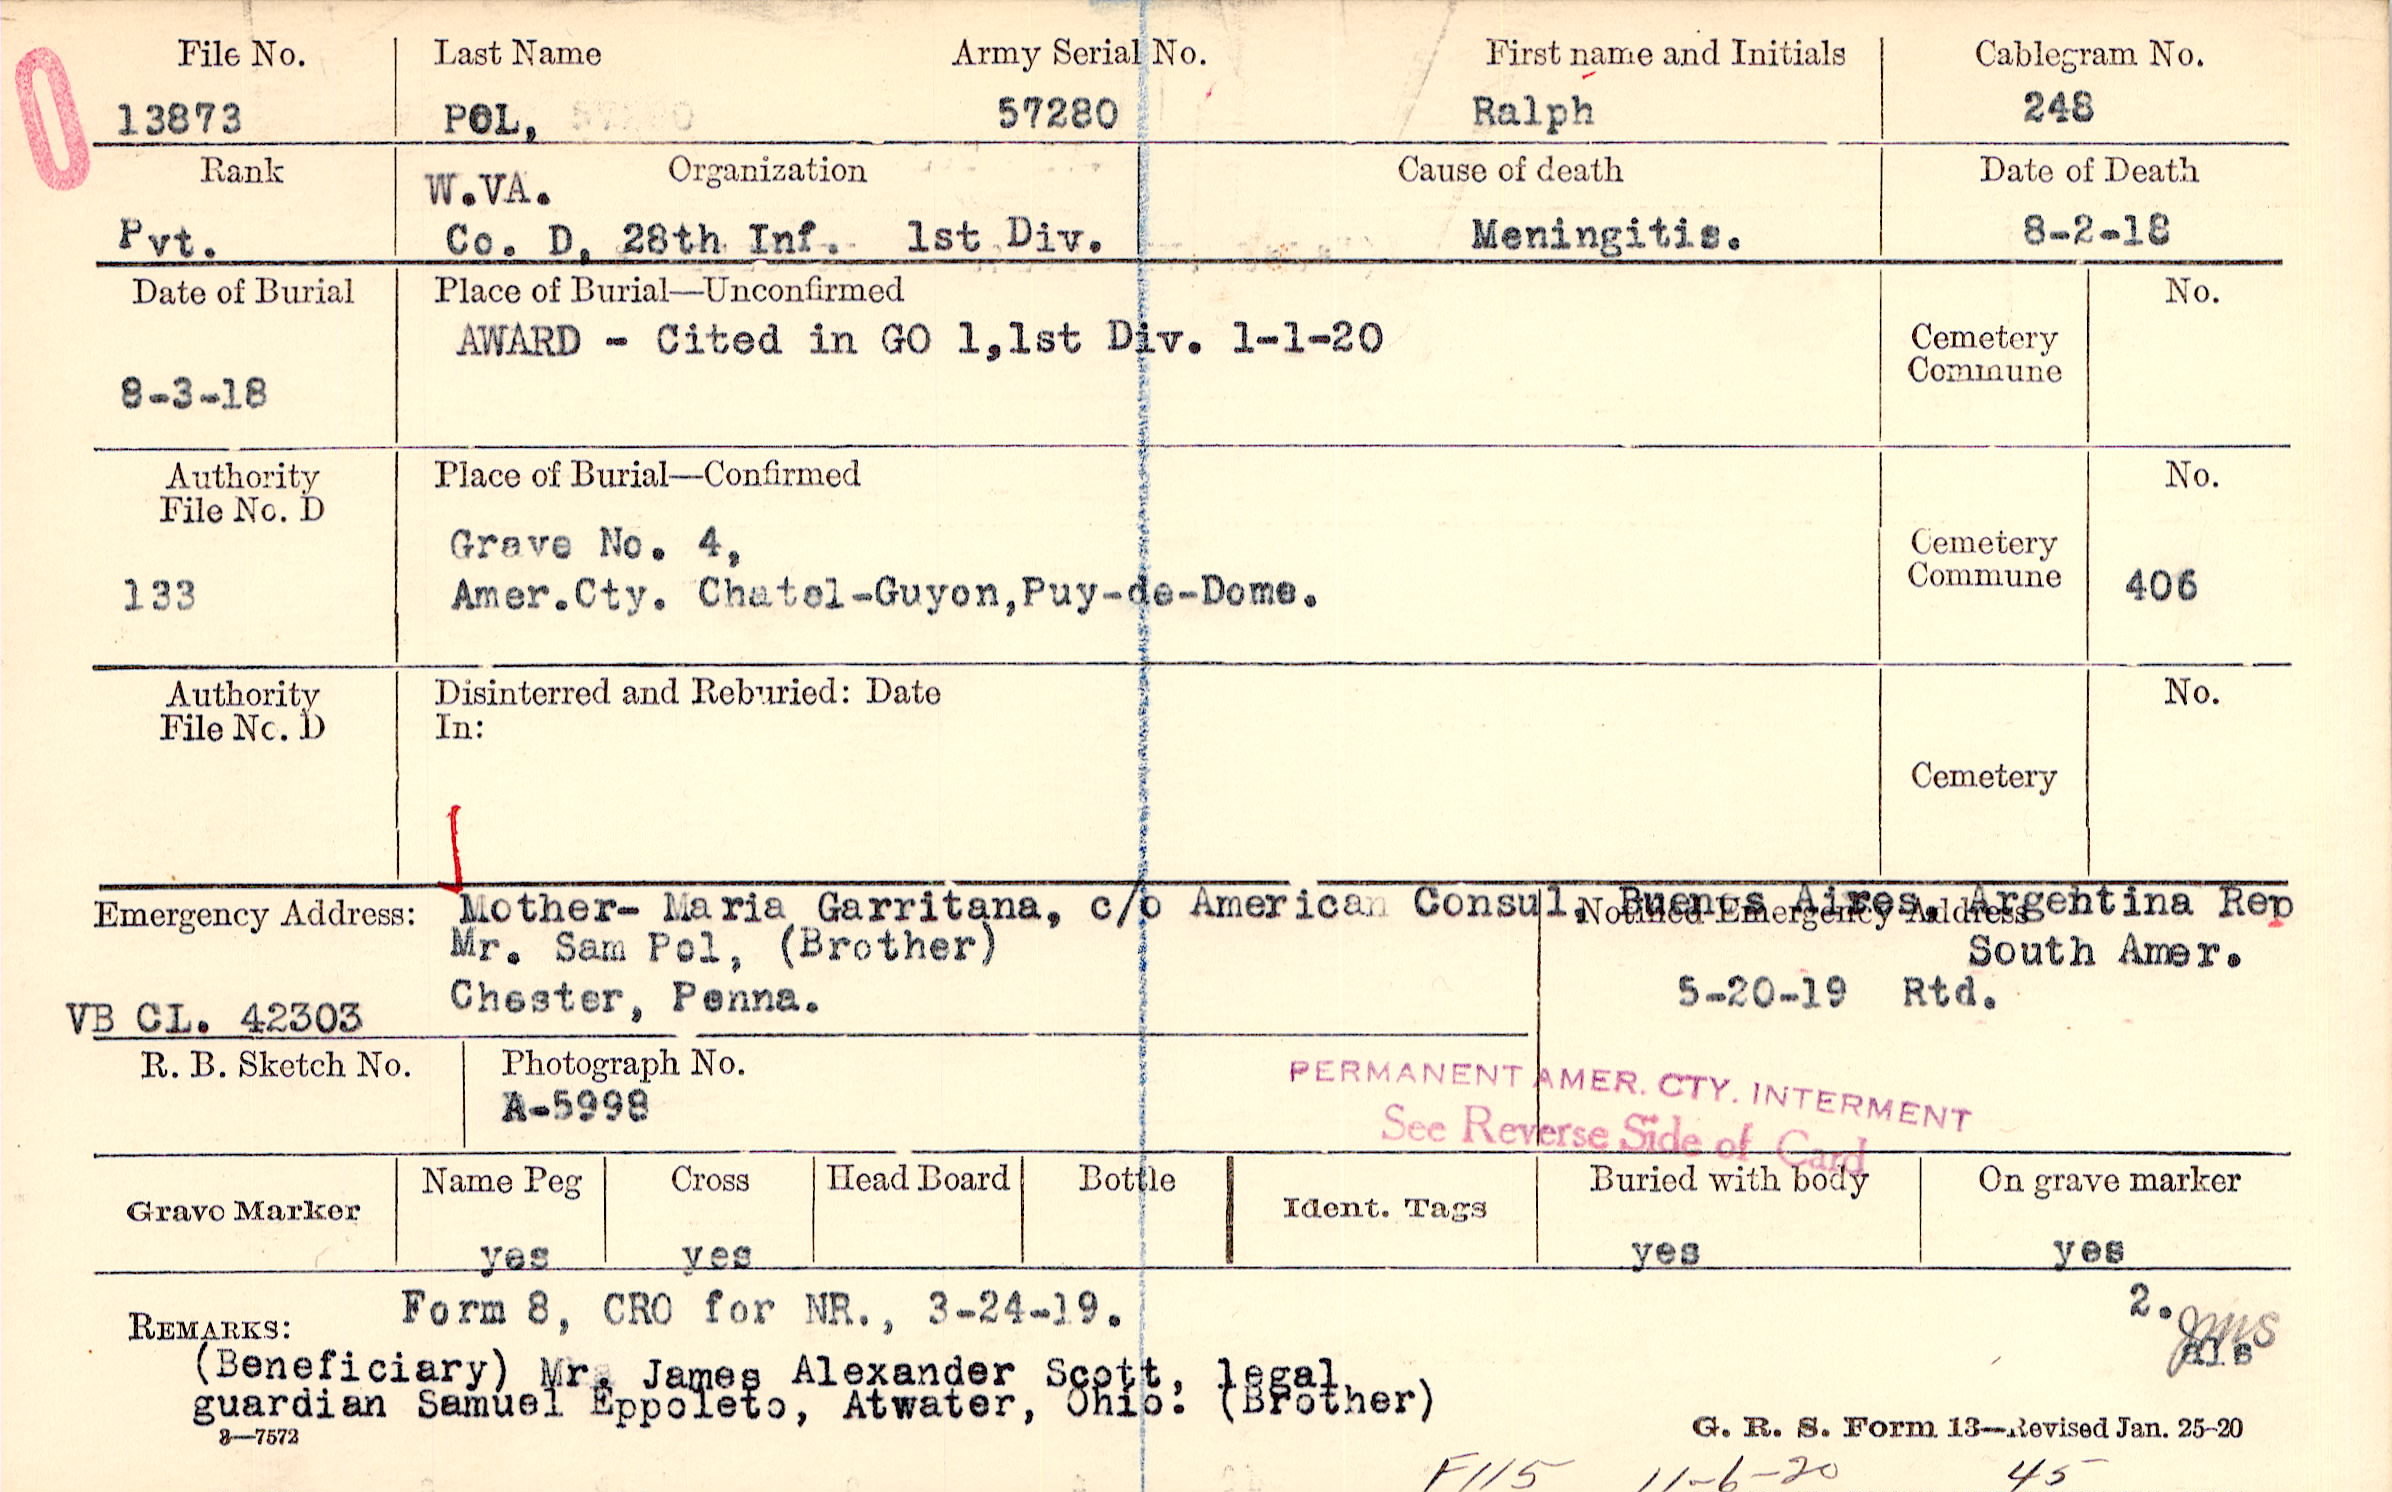 File No.
Last Name
Army Serial No.
First name and Initials
Cablegram No.
13873
POL,
57280
Ralph
248
Rank
Organization
Cause of death
Date of Death
W.VA.
Pvt.
Co. D, 28th Inf. 1st Div.
Meningitis.
8-2-18
Date of Burial
Place of Burial—Unconfirmed
No.
AWARD - Cited in GO 1,1st Div. 1-1-20
Cemetery
Commune
8-3-18
Authority
File No. D
Place of Burial—Confirmed
No.
Grave No. 4,
Cemetery
Commune
133
Amer.Cty. Chatel-Guyon,Puy-de-Dome.
406
Authority
File No. D
Disinterred and Reburied: Date
In:
No.
Cemetery
Emergency Address:
Mother- Maria Garritana, c/o American Consul, Buenos Aires, Argentina Rep
Notified Emergency Address
Mr. Sam Pol, (Brother)
South Amer.
Chester, Penna.
5-20-19 Rtd.
VB CL. 42303
R. B. Sketch No.
Photograph No.
A-5998
PERMANENT AMER. CTY. INTERMENT
See Reverse Side of Card
Grave Marker
Name Peg
Cross
Head Board
Bottle
Ident. Tags
Buried with body
On grave marker
yes
yes
yes
yes
REMARKS:
Form 8, CRO for NR., 3-24-19.
2.
(Beneficiary) Mr. James Alexander Scott, legal
guardian Samuel Eppoleto, Atwater, Ohio. (Brother)
3—7572
G. R. S. Form 13—Revised Jan. 25-20
F115 11-6-20 45